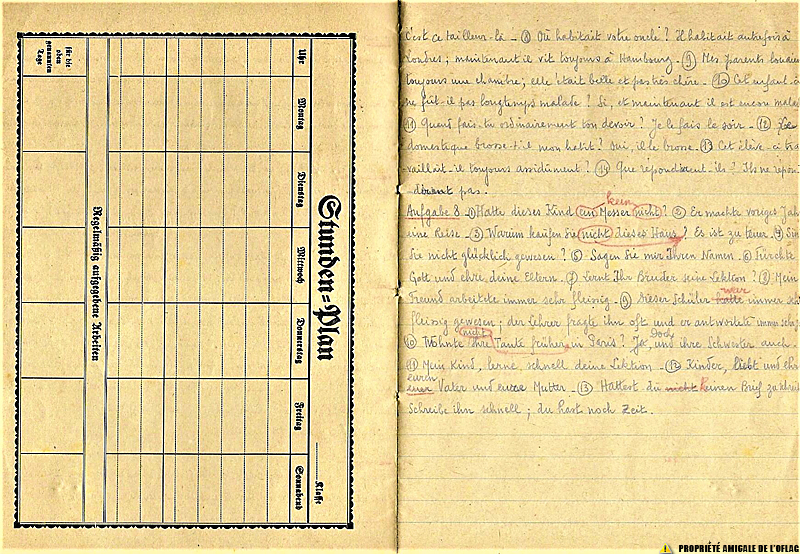 Stunden=Plan
Klasse
Uhr
Montag
Dienstag
Mittwoch
Donnerstag
Freitag
Sonnabend
Regelmäßig aufgegebene Arbeiten
für die
oben
genannten
Tage
C'est ce tailleur-là - ⑧ Où habitait votre oncle? Il habitait autrefois à
Londres; maintenant il vit toujours à Hambourg - ⑨ Mes parents louaient
toujours une chambre; elle était belle et pas très chère. - ⑩ Cet enfant
ne fût-il pas longtemps malade? Si, et maintenant il est encore malade
⑪ Quand fais-tu ordinairement ton devoir? Je le fais le soir - ⑫ Le
domestique brosse-t-il mon habit? Oui, il le brosse. ⑬ Cet élève-ci tra
vaillait-il toujours assidûment? ⑭ Que répondirent-ils? Ils ne répon-
dirent pas.
kein
Aufgabe 8 - ① Hatte dieses Kind ein Messer nicht? ② Er machte voriges Jahr
eine Reise - ③ Warum kaufen Sie nicht dieses Haus? Es ist zu teuer - ④ Sind
Sie nicht glücklich gewesen? ⑤ Sagen Sie mir Ihren Namen. ⑥ Fürchte
Gott und ehre deine Eltern. ⑦ Lernt Ihr Bruder seine Lektion? ⑧ Mein
Freund arbeitete immer sehr fleissig - ⑨ Dieser Schüler hatte immer
war
fleissig gewesen; der Lehrer fragte ihn oft und er antwortete immer
nicht
doch
⑩ Wohnte Ihre Tante früher in Paris? Ja, und ihre Schwester auch -
⑪ Mein Kind, lerne schnell deine Lektion - ⑫ Kinder, liebt und ehrt
euern
euer Vater und eure Mutter. - ⑬ Hattest du nicht keinen Brief zu
Schreibe ihn schnell; du hast noch Zeit.
PROPRIÉTÉ AMICALE DE L'OFLAG